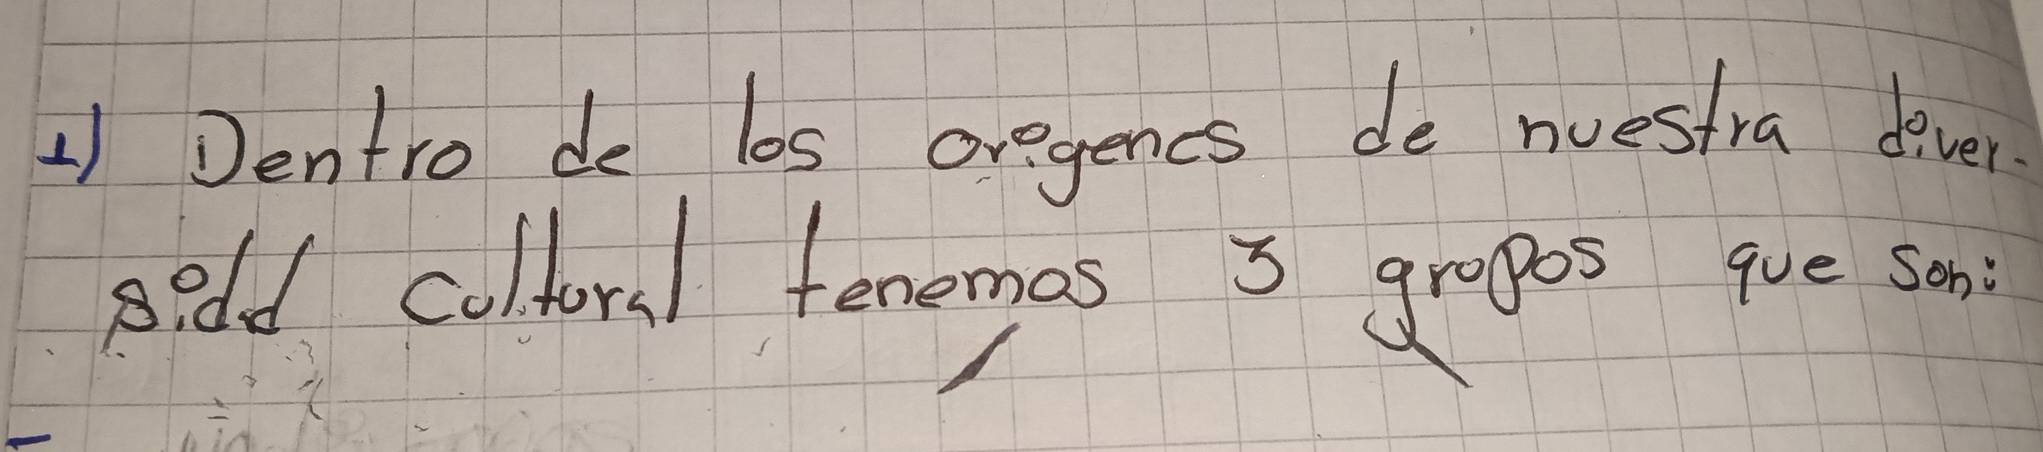 1) Dentro de los orígenes de nuestra diver-
sidad cultural tenemos 3 grupos que son: